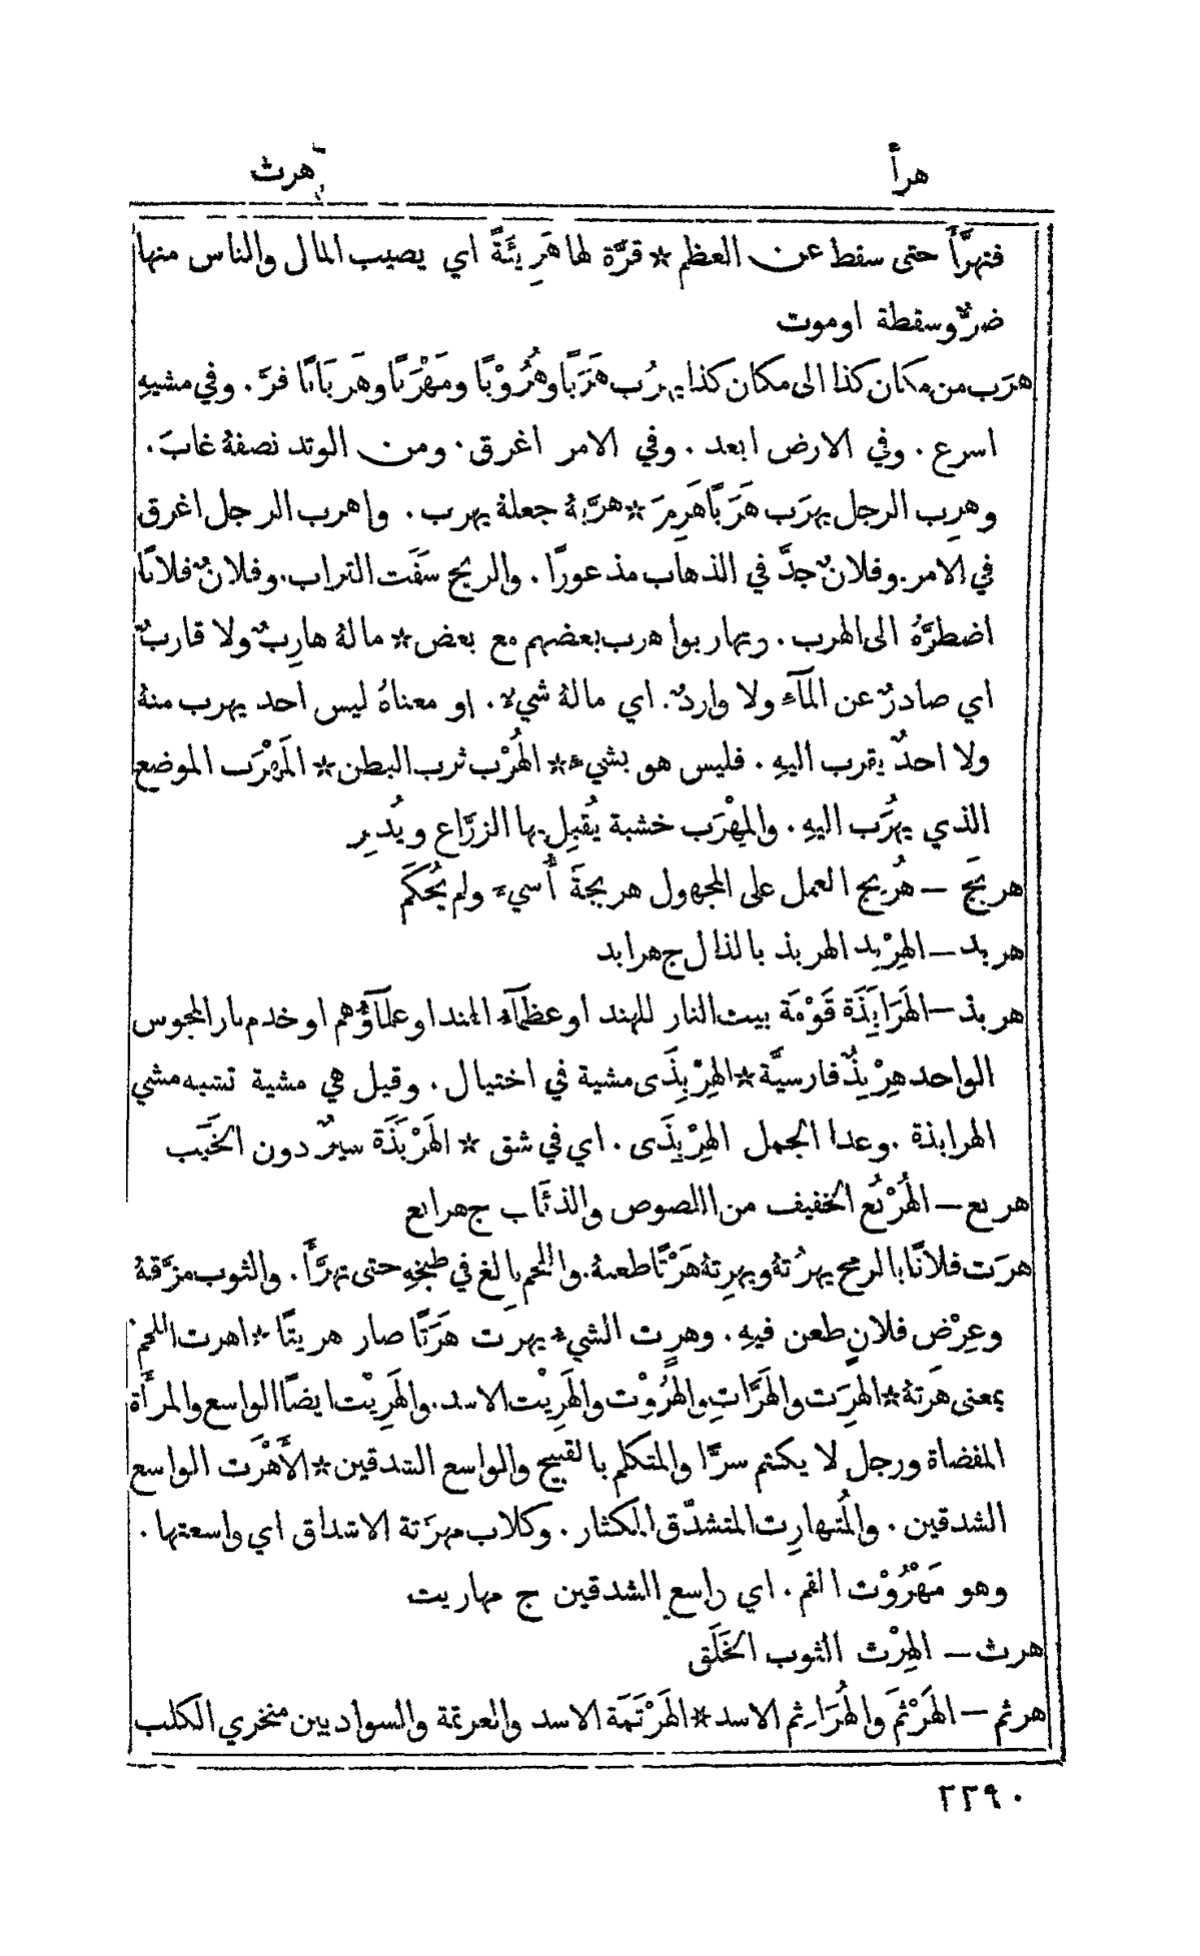 هرأ
هرث
فتهرَّأَ حتى سقط عن العظم * قرَّة لها هَرِيئَةً اي يصيب المال والناس منها
ضرٌّ وسقطة او موت
هرَب من مكان كذا الى مكان كذا يهرُب هَرَبًا وهُرُوْبًا ومَهْرَبًا وهَرَبَانًا فرَّ . وفي مشيهِ
اسرع . وفي الارض ابعد . وفي الامر اغرق . ومن الوتد نصفهُ غابَ .
وهرِب الرجل يهرَب هَرَبًا هَرِمَ * هرَّبهُ جعلهُ يهرب . واهرب الرجل اغرق
في الامر . وفلانٌ جدَّ في الذهاب مذعورًا . والريح سَفَت التراب . وفلانٌ فلانًا
اضطرَّهُ الى الهرب . وتهاربوا هرب بعضهم مع بعض * ما لهُ هارِبٌ ولا قاربٌ
اي صادرٌ عن المآء ولا واردٌ . اي ما لهُ شيءٌ . او معناهُ ليس احد يهرب منهُ
ولا احدٌ يقرب اليهِ . فليس هو بشيء * الهُرْب ثرب البطن * المَهْرَب الموضع
الذي يُهرَب اليهِ . والمِهْرَب خشبة يُقبِل بها الزرَّاع ويُدبِر
هربَج – هُربِج العمل على المجهول هربجةً أُسيءَ ولم يُحكَم
هربد – الهِرْبِد الهربذ بالذال ج هرابد
هربذ – الهَرَابِذَة قَوْمَة بيت النار للهند او عظمآء الهند او علمآؤهم او خدم نار المجوس
الواحد هِرْبِذٌ فارسيَّة * الهِرْبِذَى مشية في اختيال . وقيل هي مشية تشبه مشي
الهرابذة . وعدا الجمل الهِرْبِذَى . اي في شق * الهَرْبَذَة سيرٌ دون الخَبَب
هربع – الهُرْبُع الخفيف من اللصوص والذئاب ج هرابع
هرَت فلانًا بالرمح يهرُتهُ ويهرِتهُ هَرْتًا طعنهُ . واللحم بالغ في طبخهِ حتى تهرَّأَ . والثوب مزَّقهُ
وعِرْض فلانٍ طعن فيهِ . وهرِت الشيء يهرت هَرَتًا صار هريتًا * اهرت اللحم
بمعنى هَرَتهُ * الهرِت والهَرَّات والهَرُوْت والهَرِيْت الاسد . والهَرِيْت ايضًا الواسع والمرأَة
المفضاة ورجل لا يكتم سرًّا والمتكلم بالقبيح والواسع الشدقين * الأَهْرَت الواسع
الشدقين . والمُتهارِت المتشدّق المكثار . وكلاب مهرَتة الاشداق اي واسعتها .
وهو مَهْرُوْت الفم . اي واسع الشدقين ج مهاريت
هرث – الهِرْث الثوب الخَلَق
هرثم – الهَرْثَم والهُرَارِثم الاسد * الهَرْثَمَة الاسد والعرتمة والسواد بين منخري الكلب
٢٢٩٠